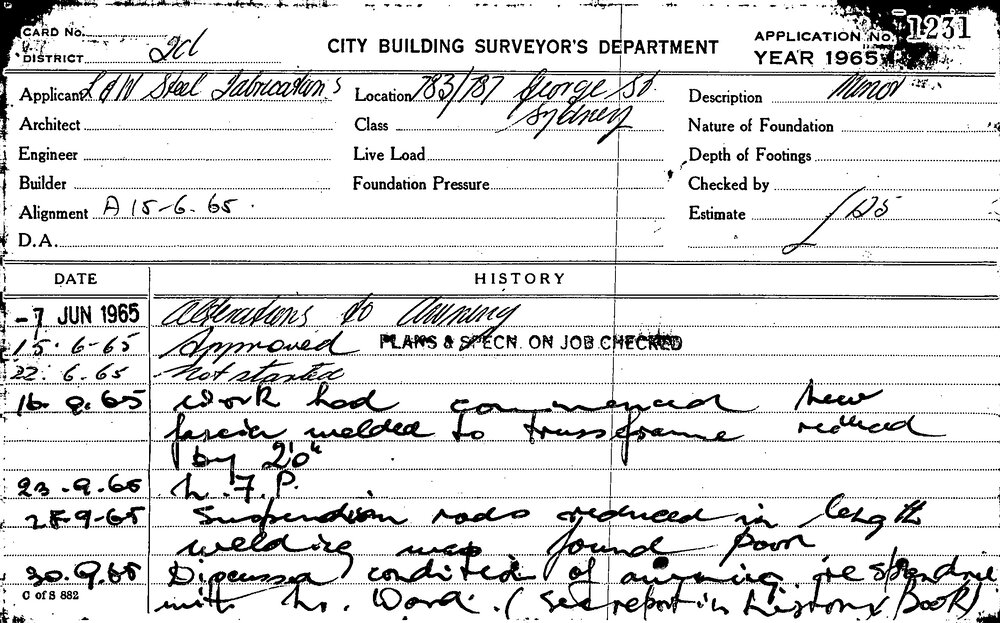 CARD No.
DISTRICT 2d
CITY BUILDING SURVEYOR'S DEPARTMENT
APPLICATION No. 1231
YEAR 1965
Applicant L & W Steel Fabrications
Location 783/787 George St
Sydney
Description Minor
Architect
Class
Nature of Foundation
Engineer
Live Load
Depth of Footings
Builder
Foundation Pressure
Checked by
Alignment A 15-6.65.
Estimate £125
D.A.
DATE HISTORY
-7 JUN 1965 Alterations to Awning
15.6-65 Approved PLANS & SPECN. ON JOB CHECKED
22.6.65 Not started
16.9.65 Work had commenced new
fascia welded to truss frame reduced
by 2'0"
23.9.65 N.F.P.
28-9-65 Suspension rods reduced in length
welding was found poor
30.9.65 Discussed condition of awning, re
with Mr. Ward. (See report in History Book)
C of S 882